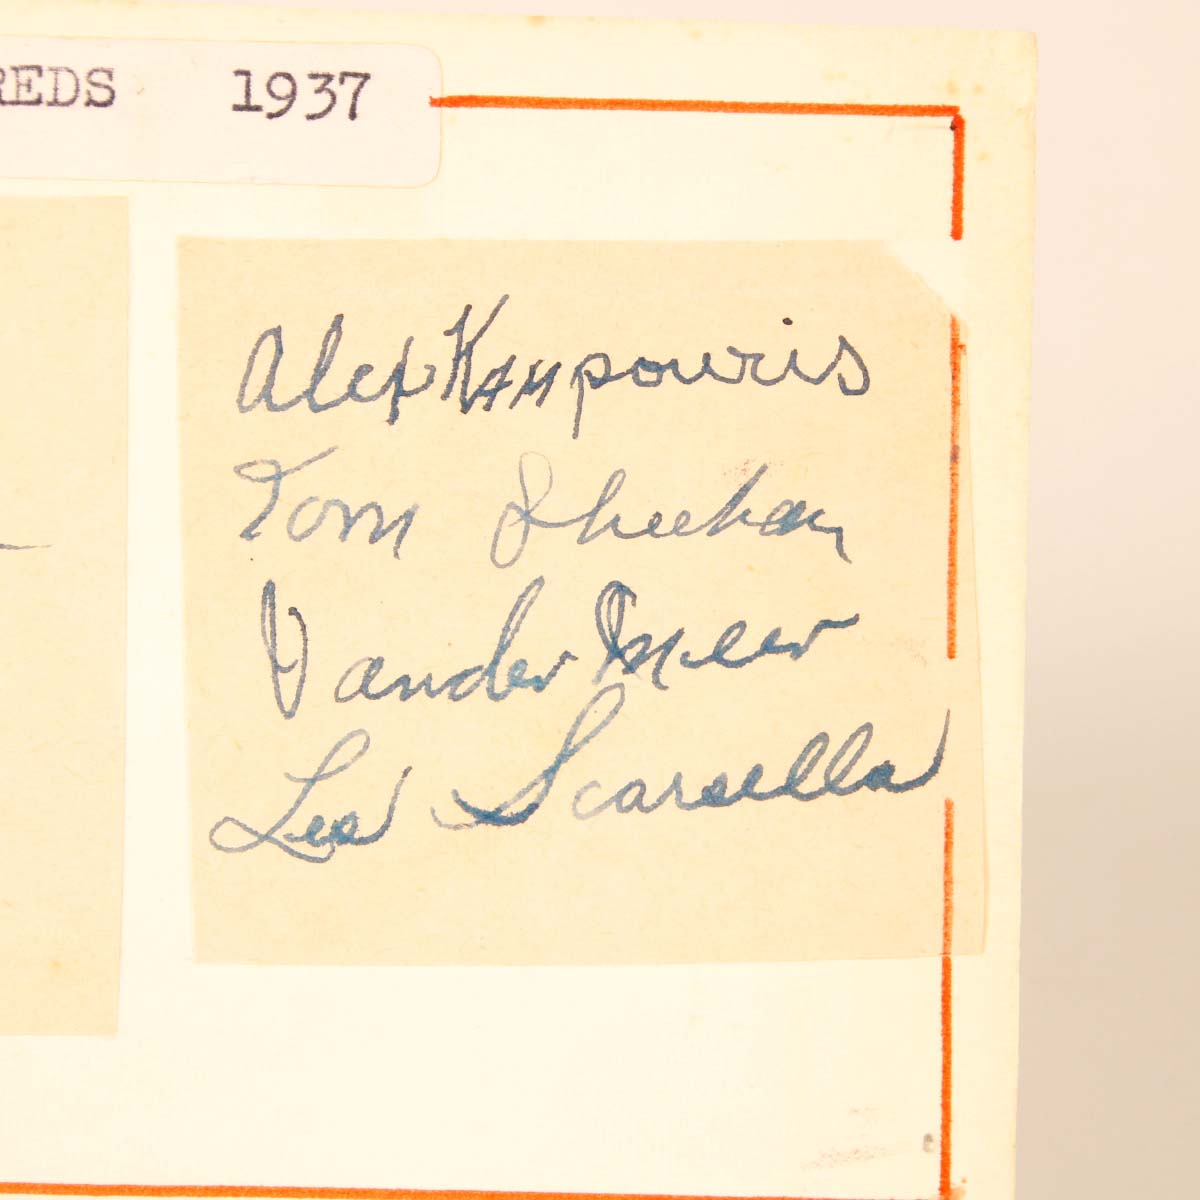 REDS 1937
Alex Kampouris
Tom Sheehan
Vander Meer
Les Scarsella